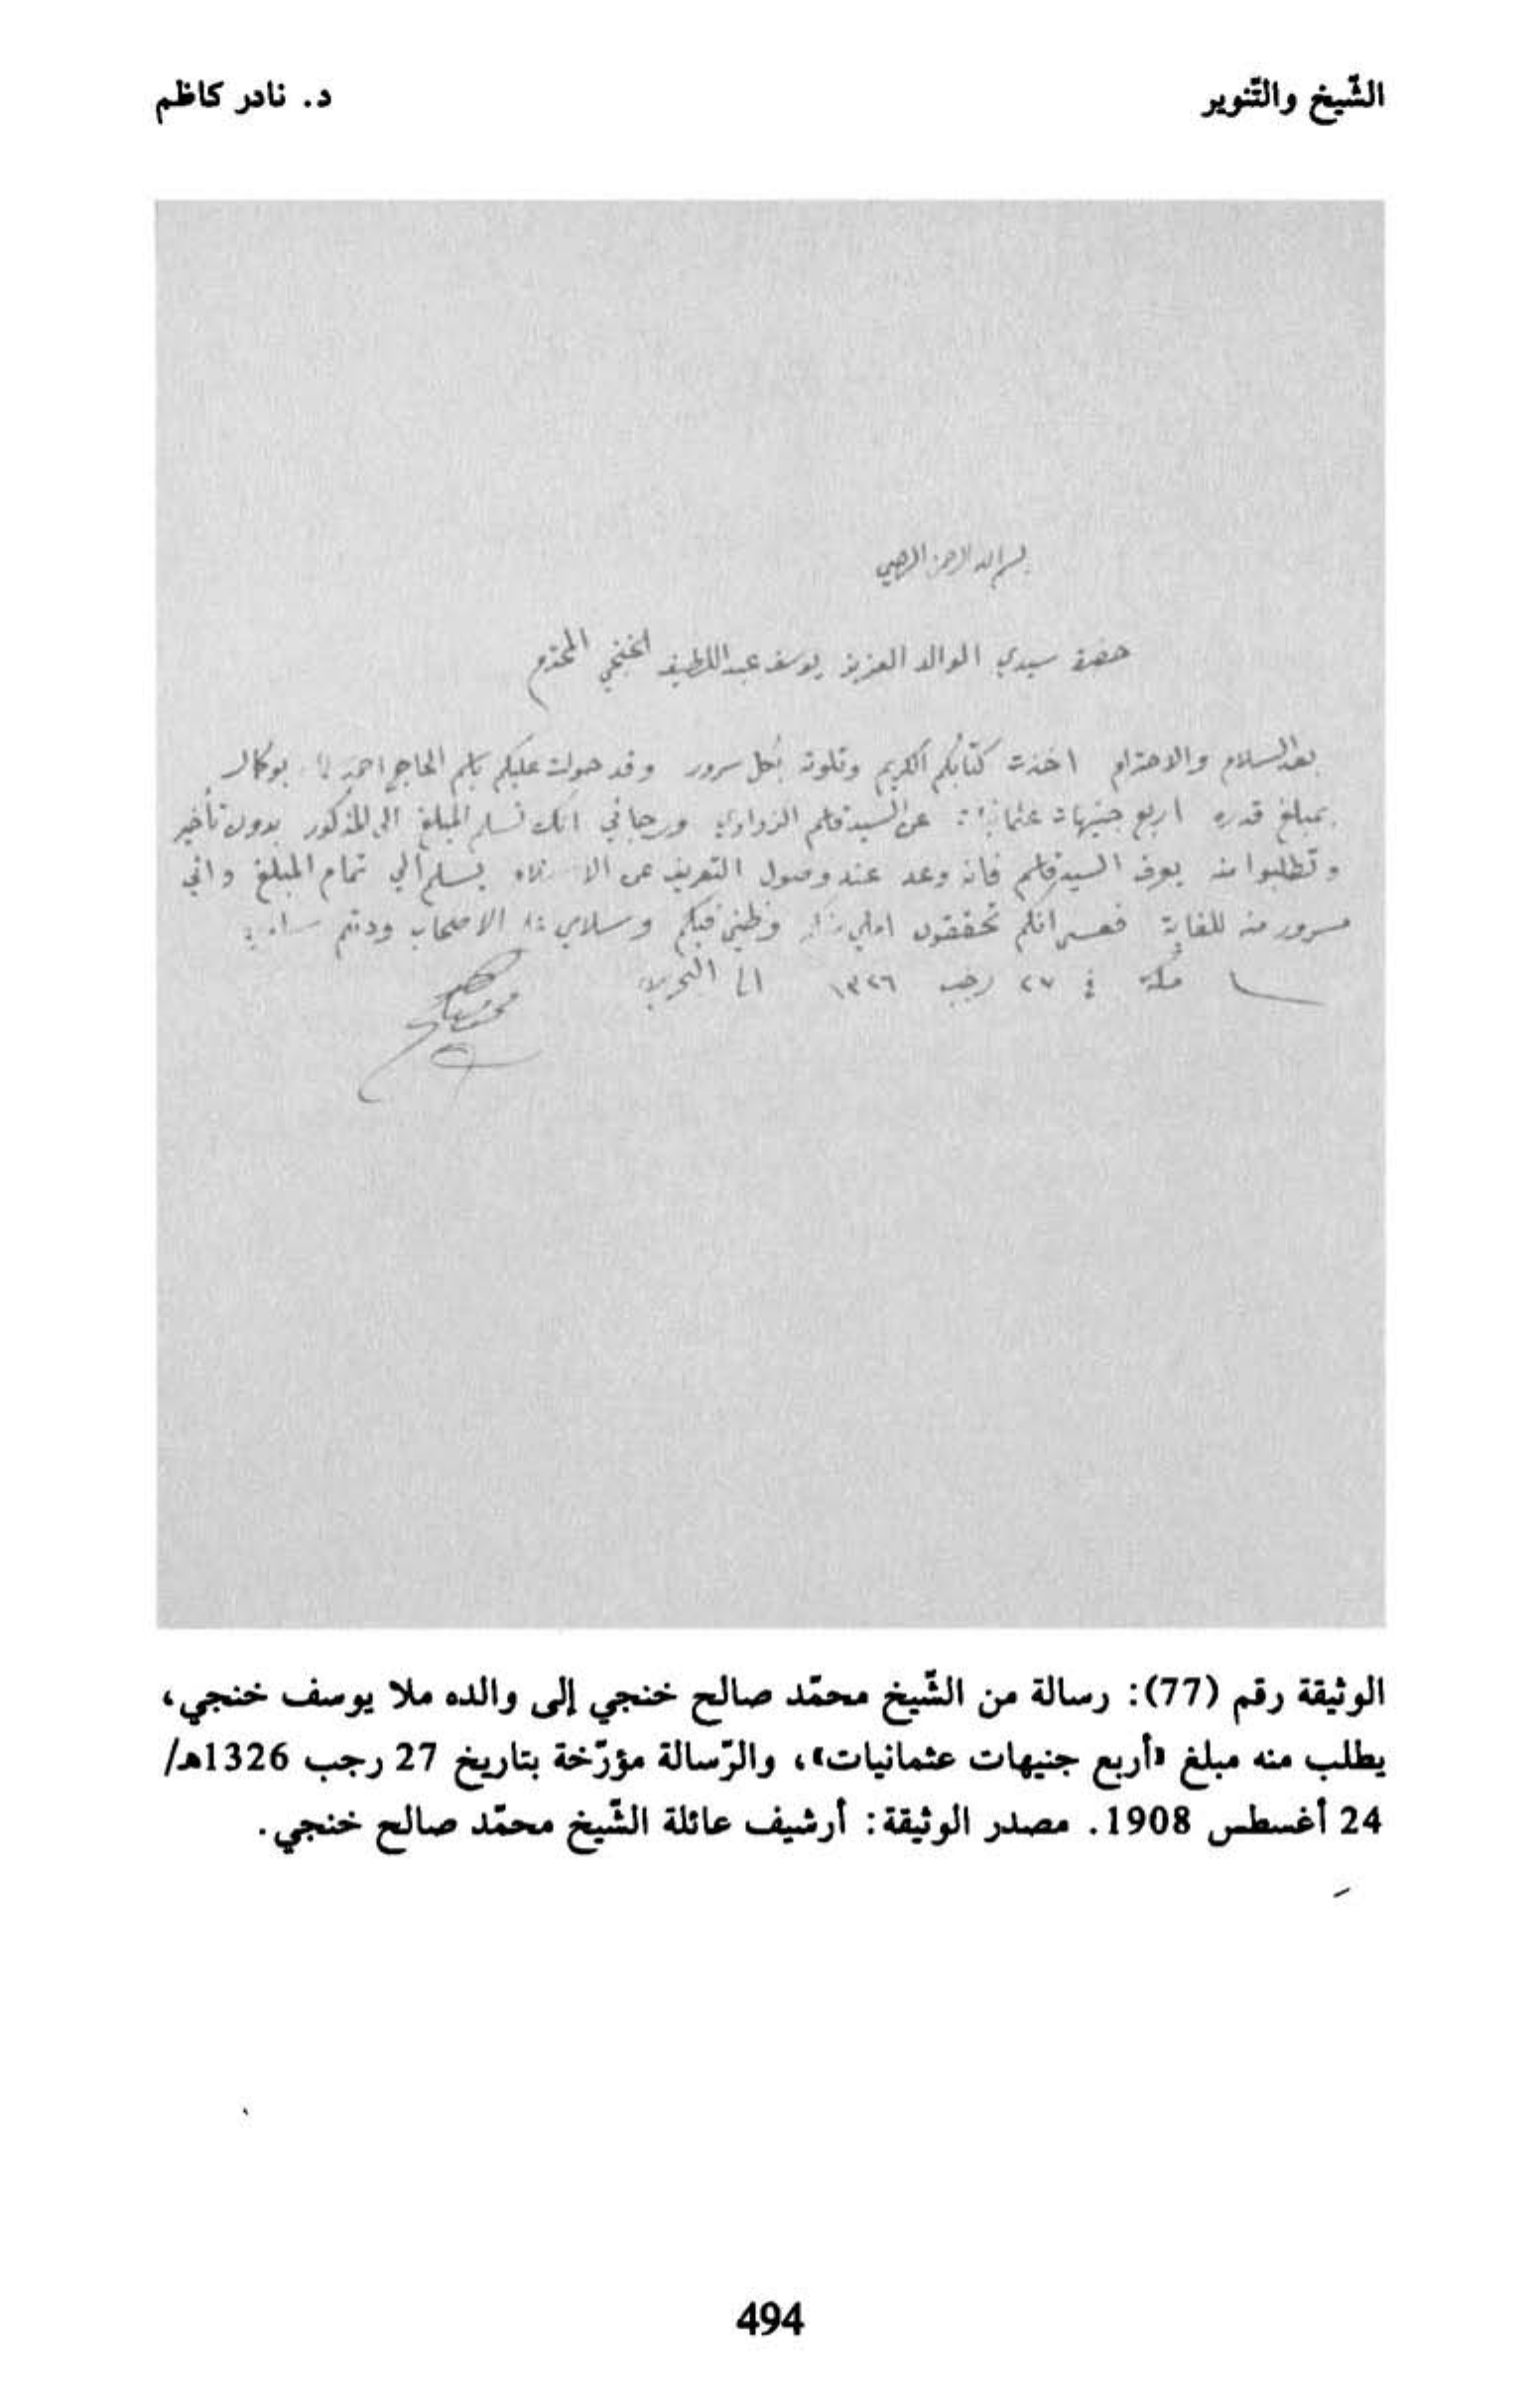 الشّيخ والتّنوير
د. نادر كاظم
بسم الله الرحمن الرحيم
حضرة سيدي الوالد العزيز يوسف عبداللطيف الخنجي المحترم
بعد السلام والاحترام اخذت كتابكم الكريم وتلوته بكل سرور وقد حولت عليكم باسم الحاج احمد بوكمال
بمبلغ قدره اربع جنيهات عثمانيات عن السيد قاسم الزواوي ورجائي انك تسلم المبلغ الى المذكور بدون تأخير
وتطلبوا منه يعرف السيد قاسم فانه وعد عند وصول التعريف عن الاستلام يسلم الي تمام المبلغ واني
مسرور منه للغاية فعسى انكم تحققون املي وظني فيكم وسلامي الاصحاب ودمتم
مكة في ٢٧ رجب ١٣٢٦ الى البحرين
محمد صالح
الوثيقة رقم (77): رسالة من الشّيخ محمّد صالح خنجي إلى والده ملا يوسف خنجي،
يطلب منه مبلغ «أربع جنيهات عثمانيات»، والرّسالة مؤرّخة بتاريخ 27 رجب 1326هـ/
24 أغسطس 1908. مصدر الوثيقة: أرشيف عائلة الشّيخ محمّد صالح خنجي.
494